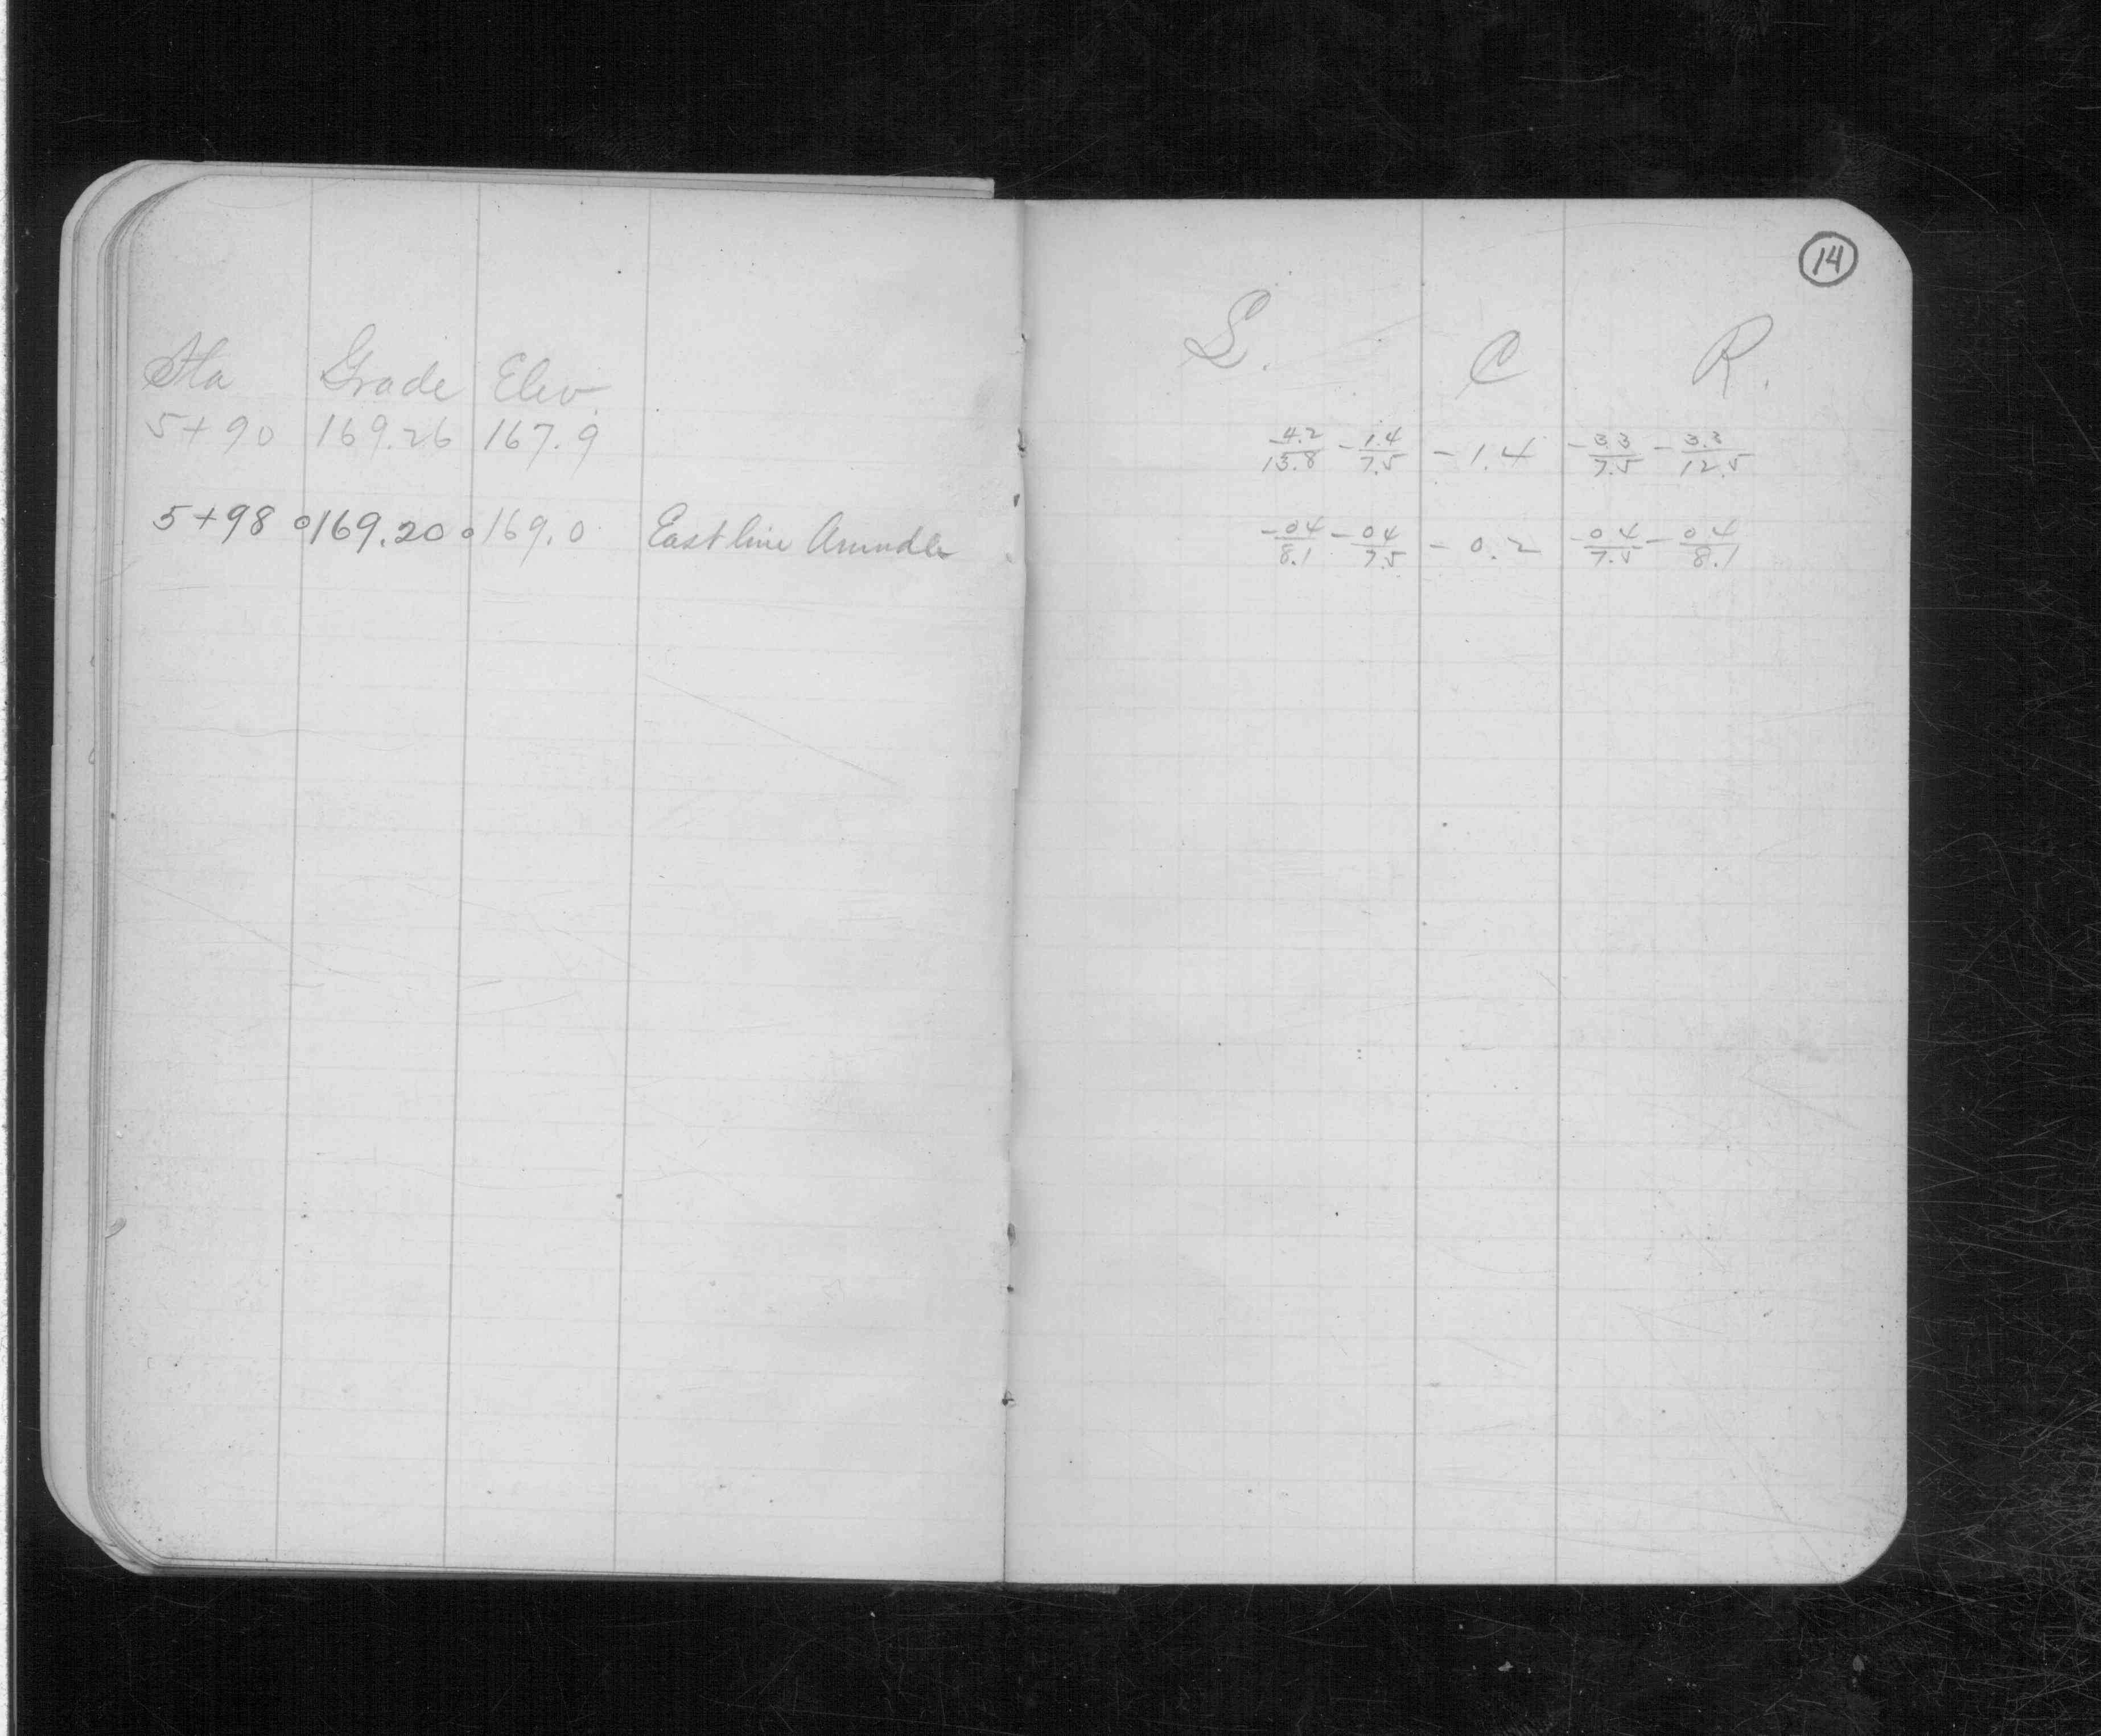 14
Sta Grade Elev. L. C R.
5+90 169.26 167.9 -4.2/13.8 -1.4/7.5 -1.4 -3.3/7.5 -3.3/12.5
5+98 169.20 169.0 East line -0.4/8.1 -0.4/7.5 -0.2 -0.4/7.5 -0.4/8.1